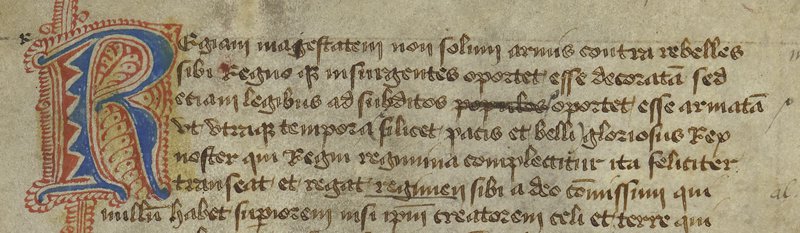 Regiam magestatem non solum armis contra rebelles
sibi Regno qz insurgentes oportet esse decoratā sed
etiam legibus ad subditos populos oportet esse armatā
vt vtraqz tempora scilicet pacis et belli gloriosus Rex
noster qui Regni regimina complectitur ita feliciter
transeat et regat regimen sibi a deo cōmissum qui
nullū habet supiorem nisi ipm creatorem celi et terre qui